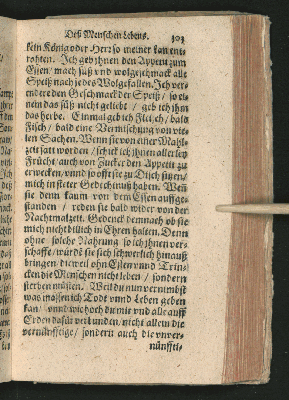 Deß Menschen Lebens. 303
kein König oder Herr so meiner kan ent-
rahten. Ich geb ihnen den Appetit zum
Essen / mach süß vnd wolgeschmack alle
Speiß nach jedes Wolgefallen. Ich ver-
endere den Geschmack der Speiß / so ei-
nem das süß nicht geliebt / geb ich ihm
das herbe. Einmal geb ich Fleisch / bald
Fisch / bald eine Vermischung von vie-
len Sachen. Wenn sie von einer Mahl-
zeit satt worden / schick ich ihnen allerley
Frücht / auch von Zucker den Appetit zu
erwecken / vnnd so offt sie zu Disch sitzen /
mich in steter Gedechtnuß haben. Wen̄
sie denn kaum von dem Essen auffge-
standen / reden sie bald wider von der
Nachtmalzeit. Gedenck demnach ob sie
mich nicht billich in Ehren halten. Denn
ohne solche Nahrung so ich ihnen ver-
schaffe / würde sie sich schwerlich hinauß
bringen / dieweil ohn Essen vnnd Trin-
cken die Menschen nicht leben / sondern
sterben müssen. Weil du nun vernimbst
was massen ich Todt vnnd Leben geben
kan / vnnd wie hoch du mir vnd alle auff
Erden dafür verbunden / nicht allein die
vernünfftige / sondern auch die vnver-
nünffti-